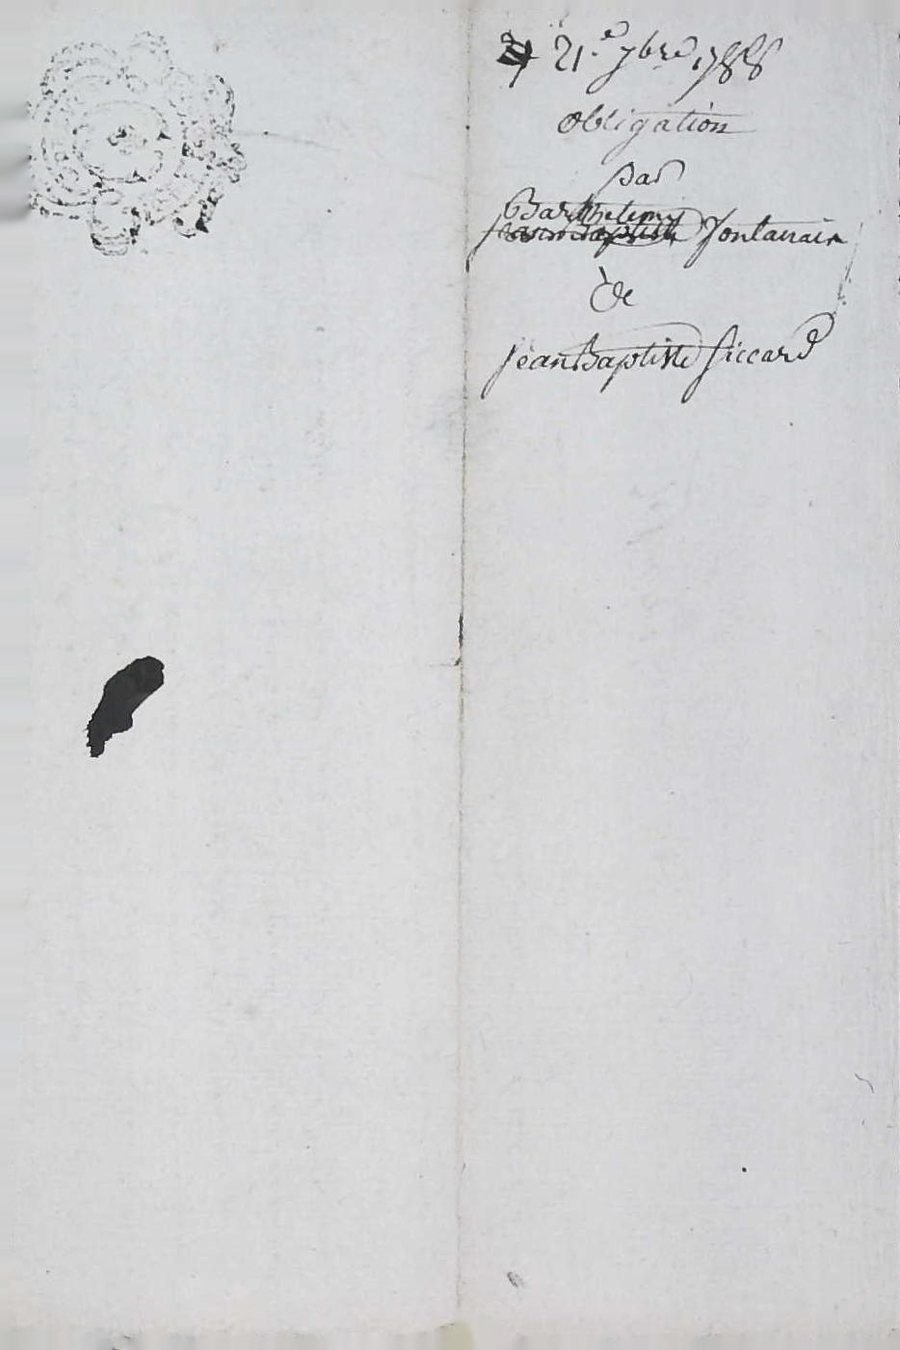 21.e 7bre 1788
obligation
par
Barthelemy
Jean Baptiste Fontanaix
De
jean Baptiste Siccard